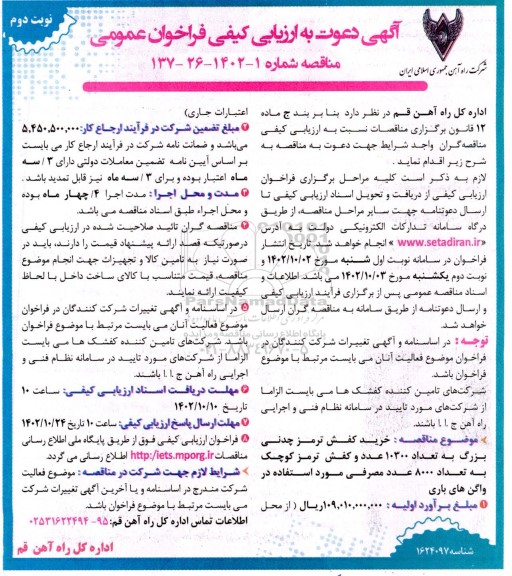 نوبت دوم
آگهی دعوت به ارزیابی کیفی فراخوان عمومی
مناقصه شماره ۱-۱۴۰۲-۲۶-۱۳۷
شرکت راه آهن جمهوری اسلامی ایران
اداره کل راه آهن قم در نظر دارد بنا بر بند ج ماده
۱۲ قانون برگزاری مناقصات نسبت به ارزیابی کیفی
مناقصه‌گران واجد شرایط جهت دعوت به مناقصه به
شرح زیر اقدام نماید.
لازم به ذکر است کلیه مراحل برگزاری فراخوان
ارزیابی کیفی از دریافت و تحویل اسناد ارزیابی کیفی تا
ارسال دعوتنامه جهت سایر مراحل مناقصه، از طریق
درگاه سامانه تدارکات الکترونیکی دولت به آدرس
«www.setadiran.ir» انجام خواهد شد. تاریخ انتشار
فراخوان در سامانه نوبت اول شنبه مورخ ۱۴۰۲/۱۰/۰۲ و
نوبت دوم یکشنبه مورخ ۱۴۰۲/۱۰/۰۳ می باشد. اطلاعات و
اسناد مناقصه عمومی پس از برگزاری فرآیند ارزیابی کیفی
و ارسال دعوتنامه از طریق سامانه به مناقصه گران ارسال
خواهد شد.
توجه: در اساسنامه و آگهی تغییرات شرکت کنندگان در
فراخوان موضوع فعالیت آنان می بایست مرتبط با موضوع
فراخوان باشد.
شرکت‌های تامین کننده کفشک ها می بایست الزاما
از شرکت‌های مورد تایید در سامانه نظام فنی و اجرایی
راه آهن ج.ا.ا باشند.
موضوع مناقصه: خرید کفش ترمز چدنی
بزرگ به تعداد ۱۰۳۰۰ عدد و کفش ترمز کوچک
به تعداد ۸۰۰۰ عدد مصرفی مورد استفاده در
واگن های باری
۱ مبلغ برآورد اولیه: ۱۰۹,۰۱۰,۰۰۰,۰۰۰ ریال (از محل
اعتبارات جاری)
۲ مبلغ تضمین شرکت در فرآیند ارجاع کار: ۵,۴۵۰,۵۰۰,۰۰۰
می‌باشد و ضمانت نامه شرکت در فرآیند ارجاع کار می بایست
بر اساس آیین نامه تضمین معاملات دولتی دارای ۳ / سه
ماه اعتبار بوده و برای ۳ / سه ماه نیز قابل تمدید باشد.
۳ مدت و محل اجرا: مدت اجرا ۴/چهار ماه بوده
و محل اجراء طبق اسناد مناقصه می باشد.
۴ مناقصه گران تائید صلاحیت شده در ارزیابی کیفی
درصورتیکه قصد ارائه پیشنهاد قیمت را دارند، باید در
صورت نیاز به تامین کالا و تجهیزات جهت انجام موضوع
مناقصه، قیمت متناسب با کالای ساخت داخل با لحاظ
کیفیت ارائه نمایند.
۵ در اساسنامه و آگهی تغییرات شرکت کنندگان در فراخوان
موضوع فعالیت آنان می بایست مرتبط با موضوع فراخوان
باشد. شرکت‌های تامین کننده کفشک ها می بایست
الزاما از شرکت‌های مورد تایید در سامانه نظام فنی و
اجرایی راه آهن ج.ا.ا باشند.
۶ مهلت دریافت اسناد ارزیابی کیفی: ساعت ۱۰
تاریخ ۱۴۰۲/۱۰/۱۰
۷ مهلت ارسال پاسخ ارزیابی کیفی: ساعت ۱۰ تاریخ ۱۴۰۲/۱۰/۲۴
۸ فراخوان ارزیابی کیفی فوق از طریق پایگاه ملی اطلاع رسانی
مناقصات http://iets.mporg.ir اطلاع رسانی می گردد.
شرایط لازم جهت شرکت در مناقصه: موضوع فعالیت
شرکت مندرج در اساسنامه و یا آخرین آگهی تغییرات شرکت
می بایست مرتبط با موضوع فراخوان باشد.
اطلاعات تماس اداره کل راه آهن قم: ۹۵-۰۲۵۳۱۶۲۲۴۹۴
شناسه ۱۶۲۴۰۹۷
اداره کل راه آهن قم